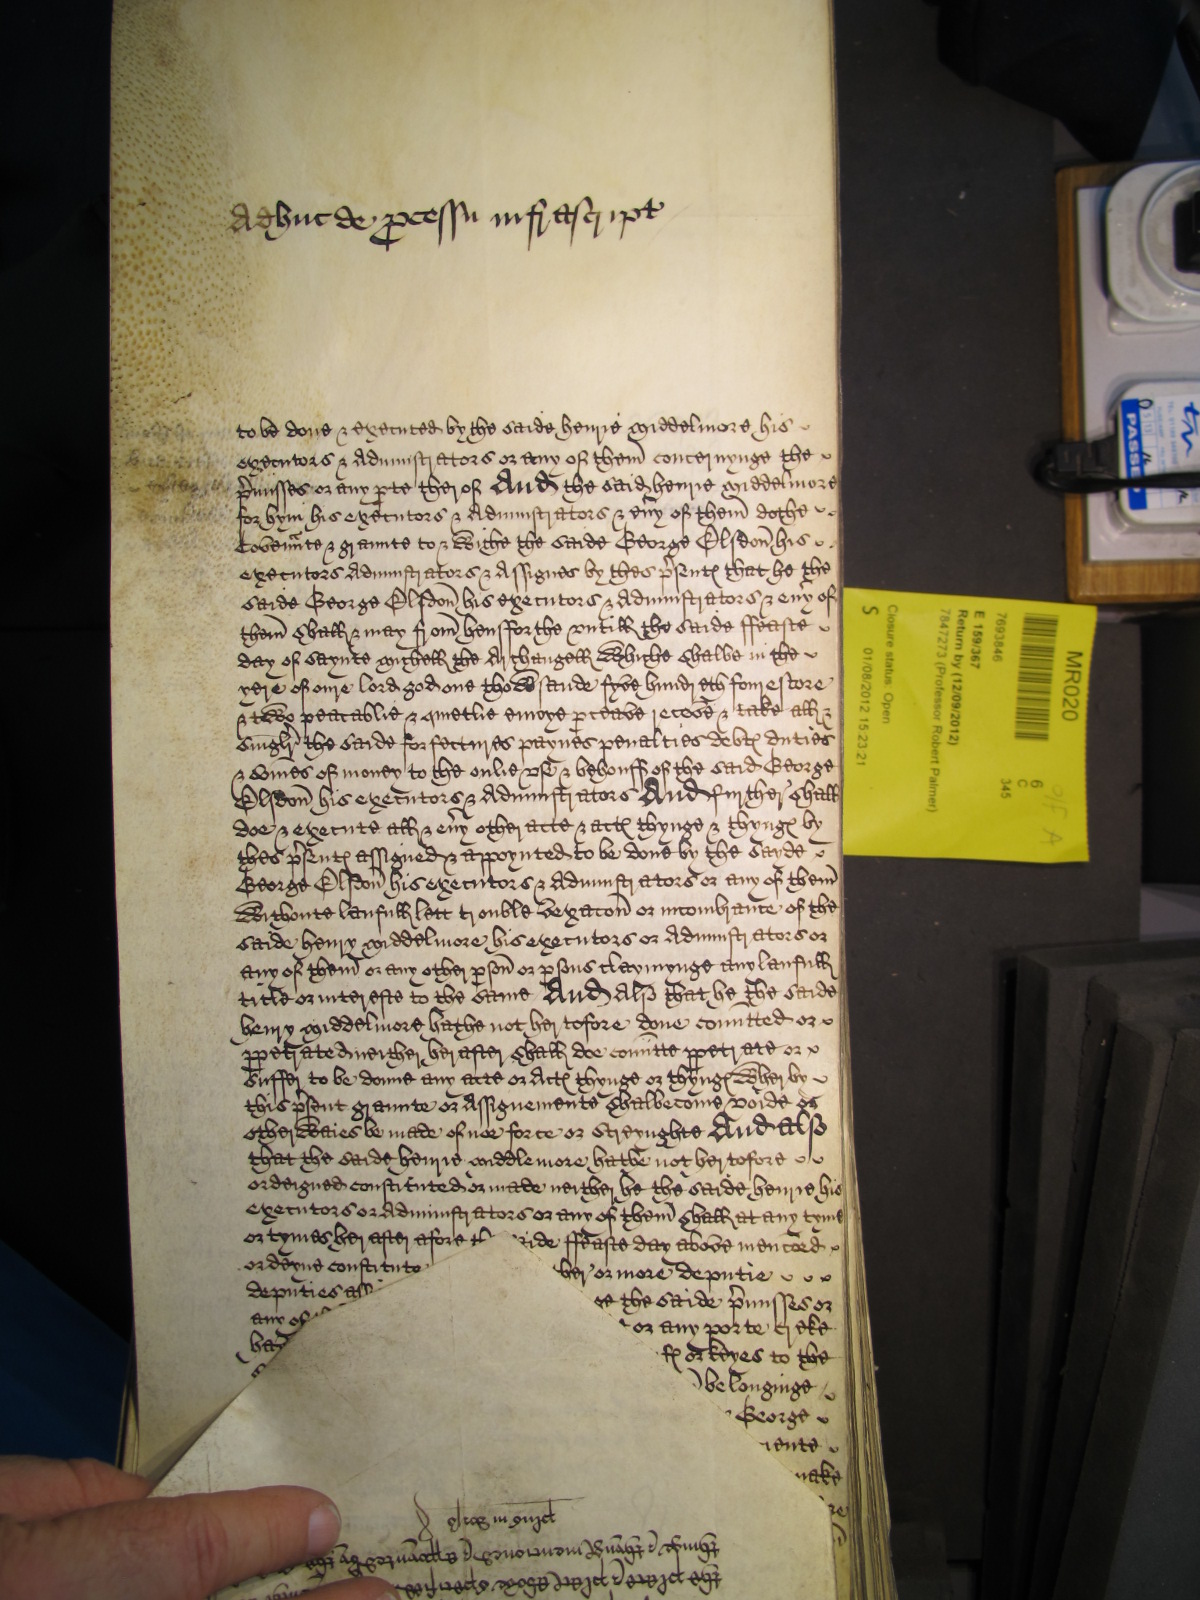 Adhuc de ꝓcessu infrascript
to be done & executed by the saide henrie middelmore his
executors & Administrators or any of them concernynge the
p̄misses or any ꝑte therof And the said henrie middelmore
for hym his executors & Administrators & eṽy of them dothe
Covenūte & graunte to & withe the saide George Elsdon his
executors Administrators & Assignes by thes p̄sentꝭ that he the
saide George Elsdon his executors & Administrators & eṽy of
them shall & may from hensforthe untill the saide ffeaste
day of saynte michell the Archangell whiche shalbe in the
yere of oure lord god one thowsande fyve hundreth fourestore
& two peacablie & quietlie enioye ꝑceave receve & take all &
singler the saide forfectures paynes penalties debtꝭ duties
& somes of money to the onlie use & behouff of the said George
Elsdon his executors & Administrators And further shall
doe & execute all & eṽy other acte & actꝭ thynge & thyngꝭ by
thes p̄sentꝭ assigned & appoynted to be done by the sayde
George Elsdon his executors & Administrators or any of them
withoute laufull lett trouble vexacon or incombrance of the
saide henry middelmore his executors or Administrators or
any of them or any other ꝑson or ꝑsons claymynge any laufull
title or intereste to the same And also that he the saide
henry middelmore hathe not hertofore done com̄itted or
ꝑpetrated neither herafter shall doe com̄itte ꝑpetrate or
suffer to be donne any acte or Actꝭ thynge or thyngꝭ wherby
this p̄sent graunte or Assignemente shalbecome voide or
otherwaies be made of noe force or strenghte And also
that the saide henrie middlemore hathe not hertofore
ordeigned constituted or made neither he the saide henrie his
executors or Administrators or any of them shall at any tyme
or tymes herafter afore the saide ffeaste day above menc̄oed
ordeyne constitute her or more deputie
deputies ass the saide p̄misses or
any of or any porte creke
or keyes to the
belonginge
George
make
MR020
7693846
6
C
345
E 159/367
Return by (12/09/2012)
7847273 (Professor Robert Palmer)
Closure status: Open
S 01/08/2012 15:23:21
PASSED